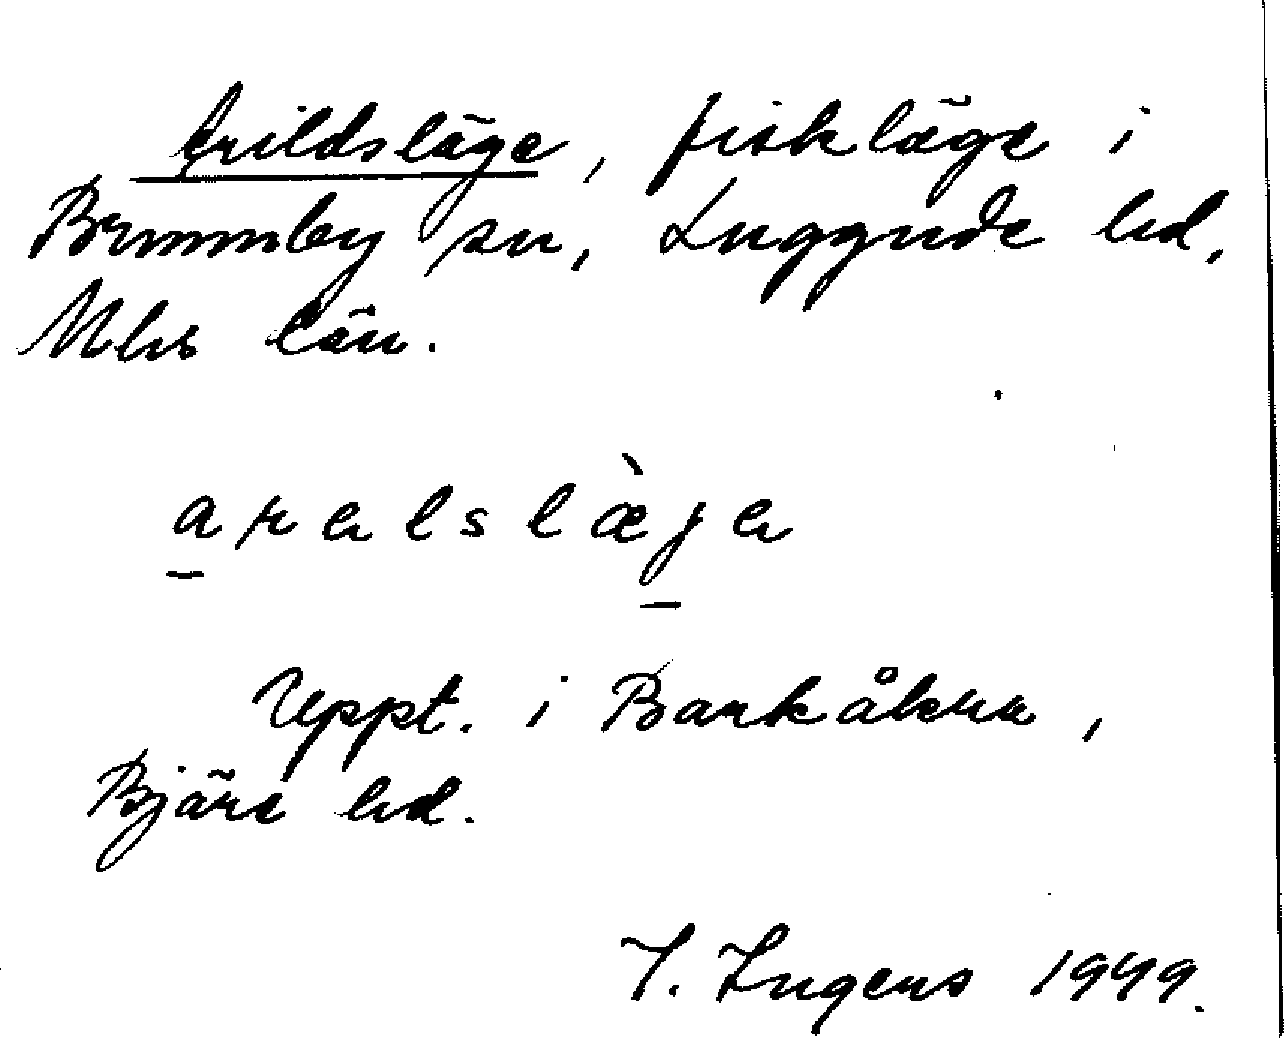 Arildsläge, fiskläge i
Brunnby sn, Luggude hd,
Mlhs län.
arəlslæ̀jə
Uppt. i Barkåkra,
Bjäre hd.
I. Ingers 1949.